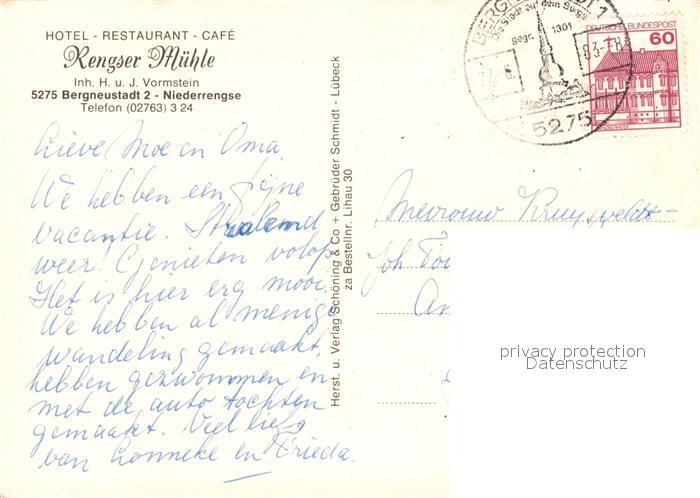 HOTEL - RESTAURANT - CAFÉ
Rengser Mühle
Inh. H. u. J. Vormstein
5275 Bergneustadt 2 - Niederrengse
Telefon (02763) 3 24
Lieve Moe en Oma.
We hebben een fijne
vacantie. Stralend
weer! Genieten volop
Het is hier erg mooi
We hebben al menige
wandeling gemaakt,
hebben gezwommen en
met de auto tochten
gemaakt. Veel liefs
van Lonneke en Frieda.
Herst. u. Verlag Schöning & Co + Gebrüder Schmidt - Lübeck
za Bestellnr. Lihau 30
Die Stadt auf dem Berge
Gegr. 1301
5275
DEUTSCHE BUNDESPOST
60
Mevrouw
Joh
privacy protection
Datenschutz